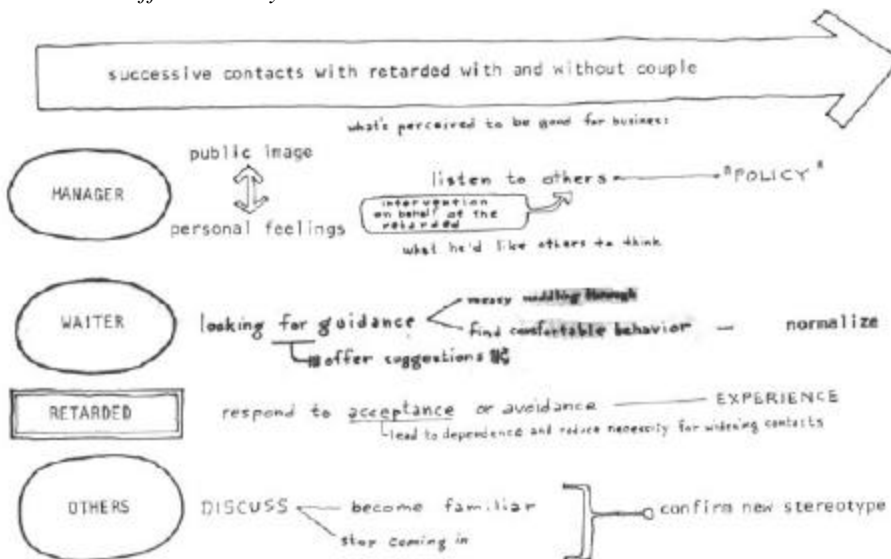 successive contacts with retarded with and without couple
what's perceived to be good for business
MANAGER
public image
personal feelings
listen to others
"POLICY"
intervention
on behalf of the
retarded
what he'd like others to think
WAITER
looking for guidance
messy muddling through
find comfortable behavior
normalize
offer suggestions
RETARDED
respond to acceptance or avoidance
EXPERIENCE
lead to dependence and reduce necessity for widening contacts
OTHERS
DISCUSS
become familiar
stop coming in
confirm new stereotype